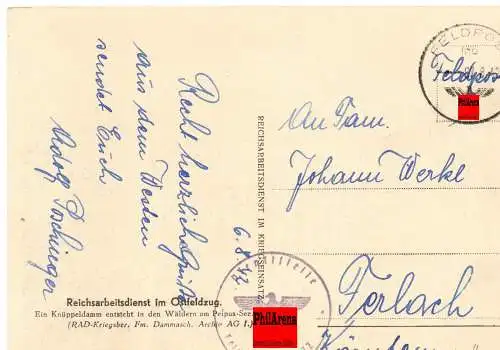 Recht herzliche Grüße
aus dem Westen
sendet Euch
Adolf
6.8.42
Reichsarbeitsdienst im Ostfeldzug.
Ein Knüppeldamm entsteht in den Wäldern am Peipus-See.
(RAD-Kriegsber. Fm. Dammasch. Archiv AG I.)
REICHSARBEITSDIENST IM KRIEGSEINSATZ
FELDPO
Feldpos
PhilArena
An Fam.
Johann Werkl
Ferlach
Kärnten
PhilArena